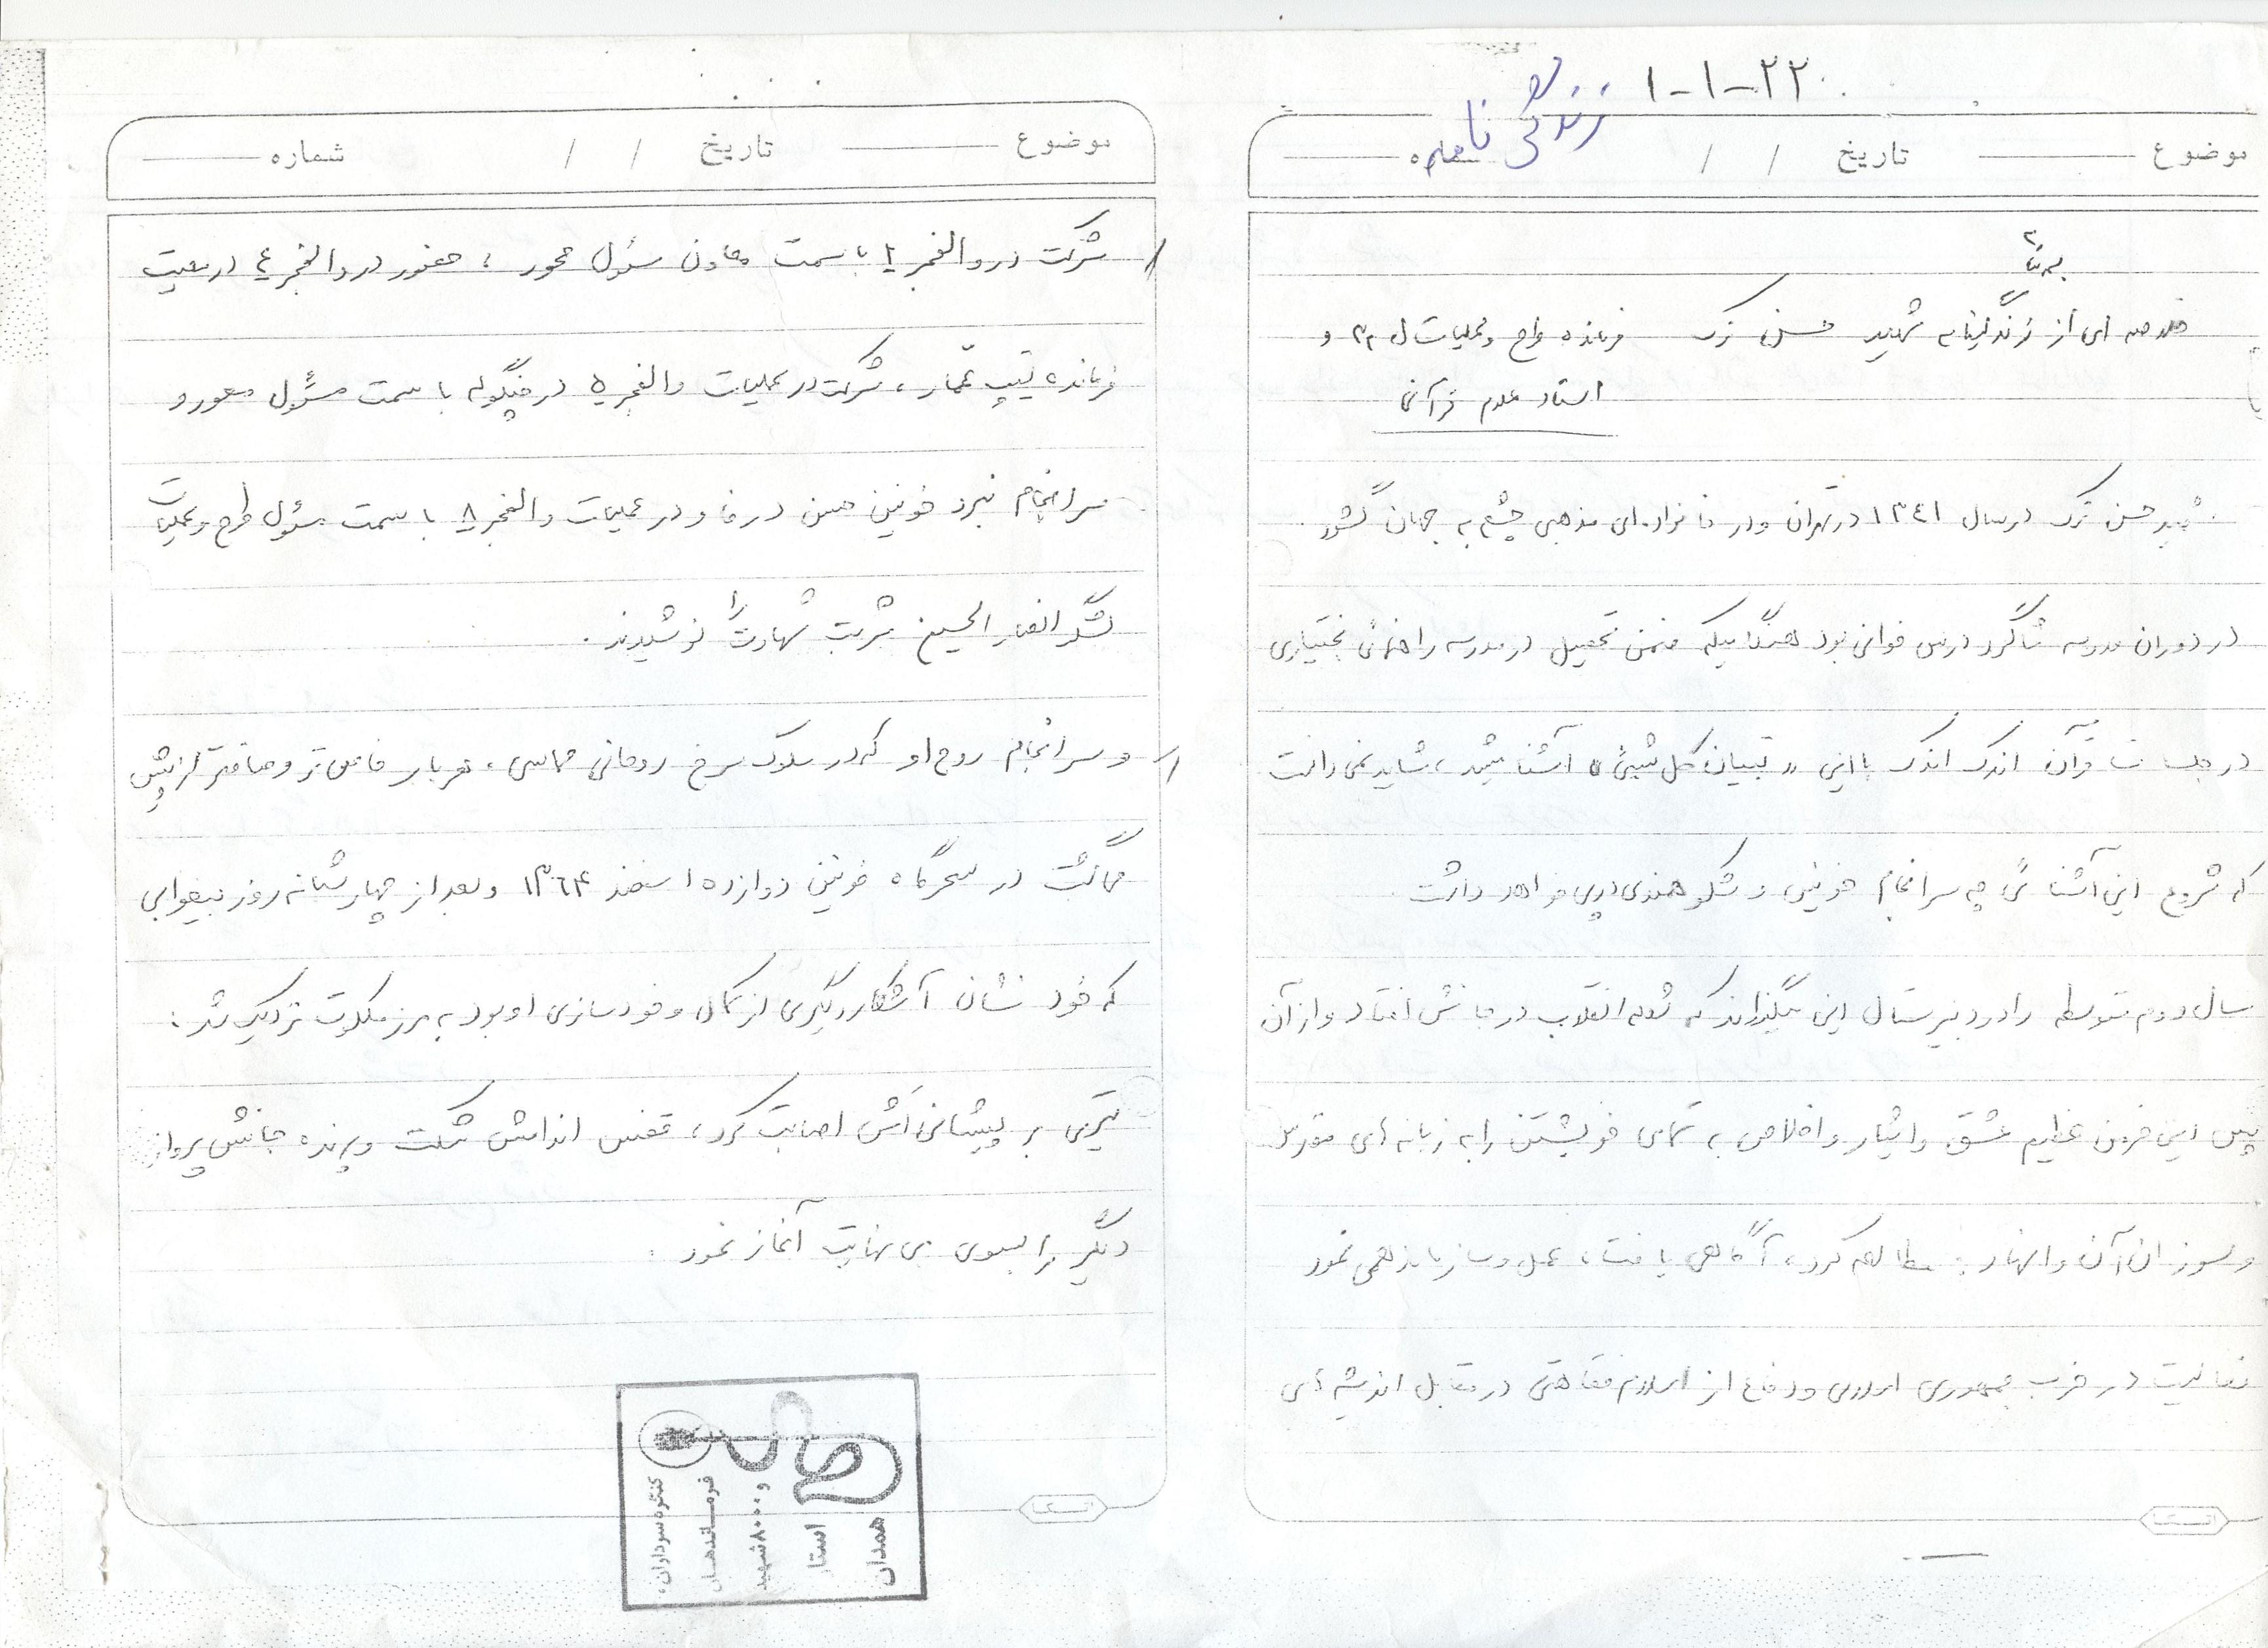 ۱-۱-۲۲
زندگی نامه
موضوع تاریخ / / شماره
بسمه تعالی
خلاصه ای از زندگینامه شهید حسن ترک فرمانده طرح و عملیات ل ۳۲ و
استاد علوم قرآنی
شهید حسن ترک در سال ۱۳۴۱ در تهران و در خانواده ای مذهبی چشم به جهان گشود.
در دوران مدرسه شاگرد درس خوانی بود هنگامیکه ضمن تحصیل در مدرسه راهنمائی بختیاری
در جلسات قرآن اندک اندک با این «تبیان کل شیئ» آشنا میشد، شاید نمی دانست
که شروع این آشنائی چه سرانجام خونین و شکوهمندی در پی خواهد داشت.
سال دوم متوسطه را در دبیرستال این میگذراند که شعله انقلاب در جانش افتاد و از آن
پس این خرمن عظیم عشق و ایثار و اخلاص به تمامی خویشتن را به زبانه های مقدس
و سوزان آن وانهاد: مطالعه کرد، آگاهی یافت، عمل و سازماندهی نمود
فعالیت در حزب جمهوری اسلامی و دفاع از اسلام فقاهتی در مقابل اندیشه های
موضوع تاریخ / / شماره
شرکت در والفجر ۲ با سمت معاون مسئول محور، حضور در والفجر ۴ در معیت
فرمانده تیپ عمّار، شرکت در عملیات والفجر ۵ در چنگوله با سمت مسئول محور و
سرانجام نبرد خونین حسن در فاو در عملیات والفجر ۸ با سمت مسئول طرح و عملیات
لشگر انصار الحسین شربت شهادت را نوشیدند.
و سرانجام روح او که در سلوک سرخ روحانی حماسی، هر بار خالص تر و صافتر از پیش
میگشت در سحرگاه خونین دوازده اسفند ۱۳۶۴ و بعد از چهار شبانه روز بیخوابی
که خود نشان آشکار دیگری از کمال و خودسازی او بود به مرز ملکوت نزدیک شد:
تیری بر پیشانی اش اصابت کرد، قفس اندامش شکست و پرنده جانش پرواز
دیگر را بسوی بی نهایت آغاز نمود.
کنگره سرداران،
فرماندهان
و ۸۰۰۰ شهید
استان
همدان